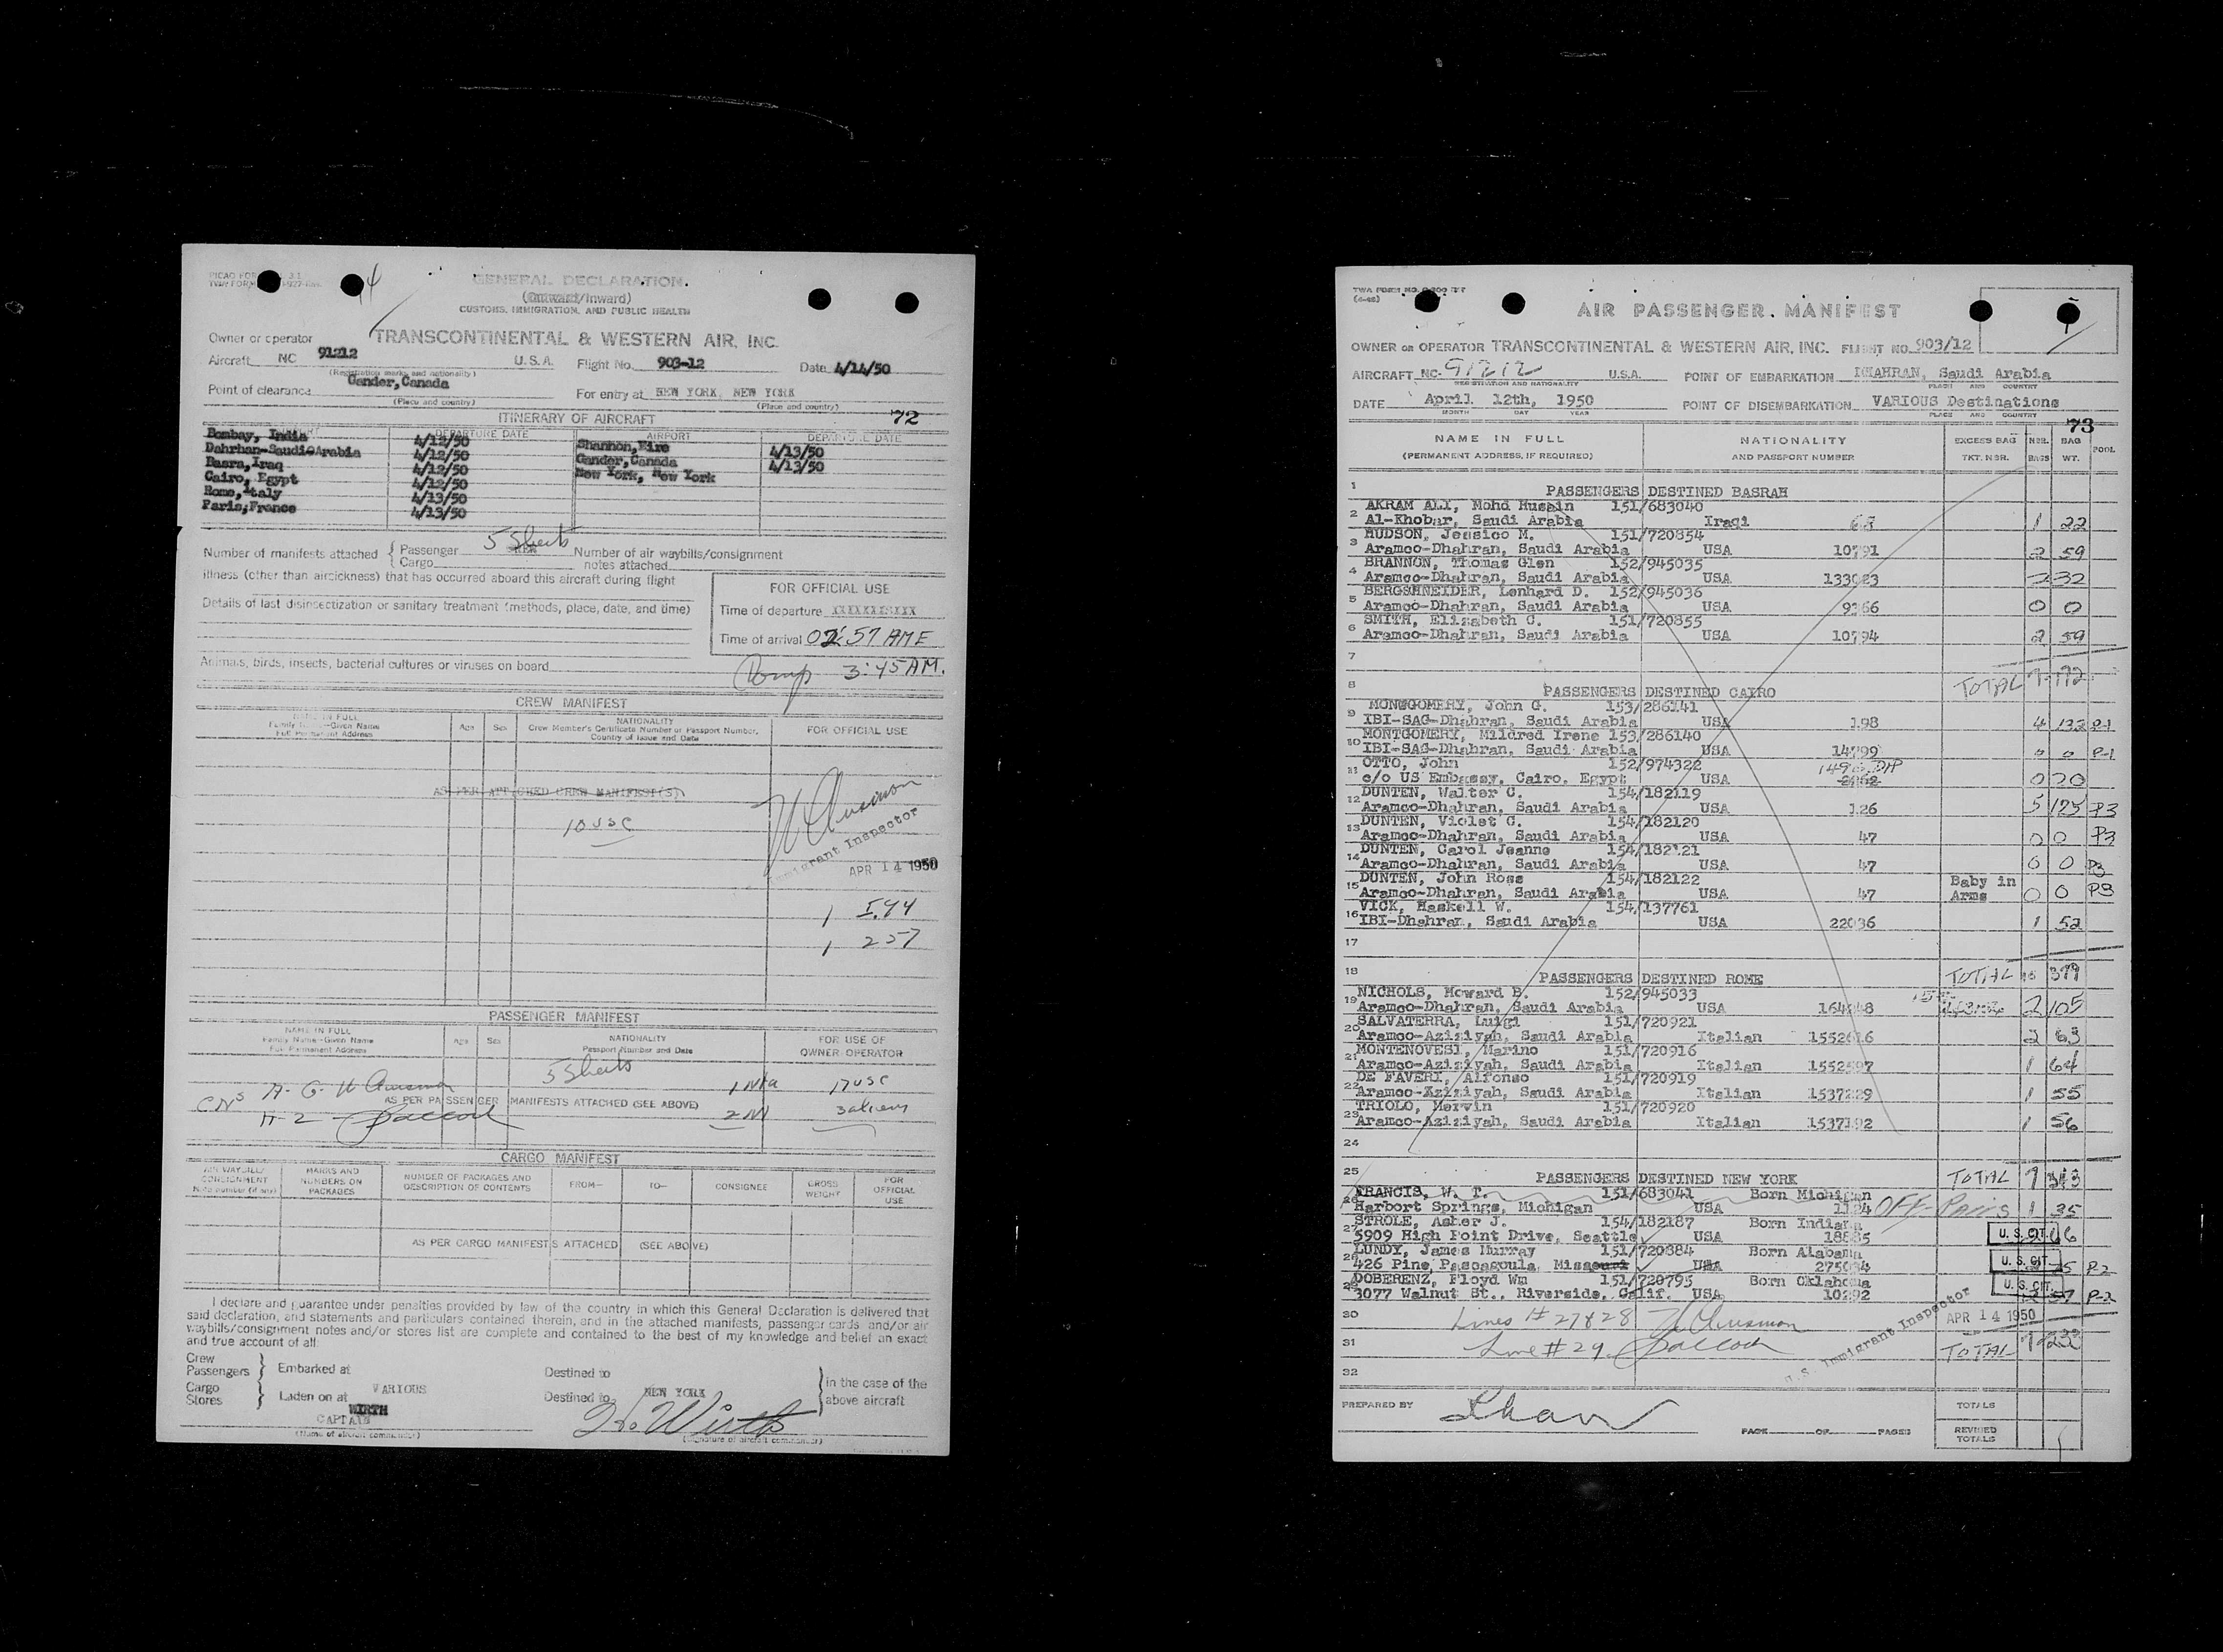 GENERAL DECLARATION
(Outward/Inward)
CUSTOMS, IMMIGRATION, AND PUBLIC HEALTH
Owner or operator TRANSCONTINENTAL & WESTERN AIR, INC.
Aircraft NC 91212 U.S.A. Flight No. 903-12 Date 4/14/50
(Registration marks and nationality)
Point of clearance Gander, Canada For entry at NEW YORK, NEW YORK
(Place and country) (Place and country)
ITINERARY OF AIRCRAFT 72
DEPARTURE DATE AIRPORT DEPARTURE DATE
Bombay, India 4/12/50 Shannon, Eire 4/13/50
Dahrhan-Saudi Arabia 4/12/50 Gander, Canada 4/13/50
Basra, Iraq 4/12/50 New York, New York
Cairo, Egypt 4/12/50
Rome, Italy 4/13/50
Paris, France 4/13/50
Number of manifests attached { Passenger 5 Sheets Number of air waybills/consignment
Cargo notes attached
Illness (other than airsickness) that has occurred aboard this aircraft during flight
FOR OFFICIAL USE
Details of last disinsectization or sanitary treatment (methods, place, date, and time)
Time of departure XXXXXXXXXXX
Time of arrival 02:57 AME
Animals, birds, insects, bacterial cultures or viruses on board
3:45 AM.
CREW MANIFEST
NAME IN FULL
Family Name—Given Name
Full Permanent Address
Age Sex
NATIONALITY
Crew Member's Certificate Number or Passport Number,
Country of Issue and Date
FOR OFFICIAL USE
AS PER ATTACHED CREW MANIFEST(S)
10 USC
Immigrant Inspector
APR 14 1950
1 I.44
1 257
PASSENGER MANIFEST
NAME IN FULL
Family Name—Given Name
Full Permanent Address
Age Sex
NATIONALITY
Passport Number and Date
FOR USE OF
OWNER OPERATOR
5 Sheets
17 USC
AS PER PASSENGER MANIFESTS ATTACHED (SEE ABOVE)
3 aliens
CARGO MANIFEST
AIR WAYBILL/
CONSIGNMENT
Note number (if any)
MARKS AND
NUMBERS ON
PACKAGES
NUMBER OF PACKAGES AND
DESCRIPTION OF CONTENTS
FROM— TO— CONSIGNEE
GROSS
WEIGHT
FOR
OFFICIAL
USE
AS PER CARGO MANIFESTS ATTACHED (SEE ABOVE)
I declare and guarantee under penalties provided by law of the country in which this General Declaration is delivered that
said declaration, and statements and particulars contained therein, and in the attached manifests, passenger cards and/or air
waybills/consignment notes and/or stores list are complete and contained to the best of my knowledge and belief an exact
and true account of all:
Crew
Passengers } Embarked at Destined to
Cargo
Stores } Laden on at VARIOUS Destined to NEW YORK
in the case of the
above aircraft
WIRTH
CAPTAIN
H. Wirth
(Name of aircraft commander) (Signature of aircraft commander)
AIR PASSENGER MANIFEST
OWNER OR OPERATOR TRANSCONTINENTAL & WESTERN AIR, INC. FLIGHT NO. 903/12
AIRCRAFT NC- 91212 U.S.A. POINT OF EMBARKATION DHAHRAN, Saudi Arabia
REGISTRATION AND NATIONALITY PLACE AND COUNTRY
DATE April 12th, 1950 POINT OF DISEMBARKATION VARIOUS Destinations
MONTH DAY YEAR PLACE AND COUNTRY
73
NAME IN FULL NATIONALITY EXCESS BAG NBR. BAG POOL
(PERMANENT ADDRESS, IF REQUIRED) AND PASSPORT NUMBER TKT. NBR. BAGS WT.
1 PASSENGERS DESTINED BASRAH
2 AKRAM ALI, Mohd Husain 151/683040
Al-Khobar, Saudi Arabia Iraqi 63 1 22
3 HUDSON, Jessico M. 151/720854
Aramco-Dhahran, Saudi Arabia USA 10791 2 59
4 BRANNON, Thomas Glen 152/945035
Aramco-Dhahran, Saudi Arabia USA 133023 2 32
5 BERGSHNEIDER, Lenhard D. 152/945036
Aramco-Dhahran, Saudi Arabia USA 9266 0 0
6 SMITH, Elizabeth C. 151/720855
Aramco-Dhahran, Saudi Arabia USA 10794 2 59
7
8 PASSENGERS DESTINED CAIRO TOTAL 7 172
9 MONTGOMERY, John G. 153/286141
IBI-SAG-Dhahran, Saudi Arabia USA 198 4 132 P-1
10 MONTGOMERY, Mildred Irene 153/286140
IBI-SAG-Dhahran, Saudi Arabia USA 14799 0 0 P-1
11 OTTO, John 152/974322
c/o US Embassy, Cairo, Egypt USA 0 20
12 DUNTEN, Walter C. 154/182119
Aramco-Dhahran, Saudi Arabia USA 126 5 175 P3
13 DUNTEN, Violet C. 154/182120
Aramco-Dhahran, Saudi Arabia USA 47 0 0 P3
14 DUNTEN, Carol Jeanne 154/182121
Aramco-Dhahran, Saudi Arabia USA 47 0 0 P3
15 DUNTEN, John Ross 154/182122 Baby in
Aramco-Dhahran, Saudi Arabia USA 47 Arms 0 0 P3
16 VICK, Haskell W. 154/137761
IBI-Dhahran, Saudi Arabia USA 22036 1 52
17
18 PASSENGERS DESTINED ROME TOTAL 379
19 NICHOLS, Howard B. 152/945033
Aramco-Dhahran, Saudi Arabia USA 2 105
20 SALVATERRA, Luigi 151/720921
Aramco-Aziziyah, Saudi Arabia Italian 1552616 2 63
21 MONTENOVESI, Marino 151/720916
Aramco-Aziziyah, Saudi Arabia Italian 1552597 1 64
22 DE FAVERI, Alfonso 151/720919
Aramco-Aziziyah, Saudi Arabia Italian 1537229 1 55
23 TRIOLO, Mervin 151/720920
Aramco-Aziziyah, Saudi Arabia Italian 1537192 1 56
24
25 PASSENGERS DESTINED NEW YORK TOTAL 7 343
26 FRANCIS, W. T. 151/683041 Born Michigan
Harbort Springs, Michigan USA 1124 OFF-Paris 1 35
27 STROLE, Asher J. 154/182187 Born Indiana
5909 High Point Drive, Seattle USA 18885 U. S. CIT.
28 LUNDY, James Murray 151/720884 Born Alabama
426 Pine, Pascagoula, Missouri USA U. S. CIT. P2
29 DOBERENZ, Floyd Wm 151/720795 Born Oklahoma
3077 Walnut St., Riverside, Calif. USA 10292 U. S. CIT. P-2
30 Lines #27 & 28
APR 14 1950
31 Line #29
U.S. Immigrant Inspector
TOTAL
32
PREPARED BY TOTALS
PAGE OF PAGES REVISED
TOTALS